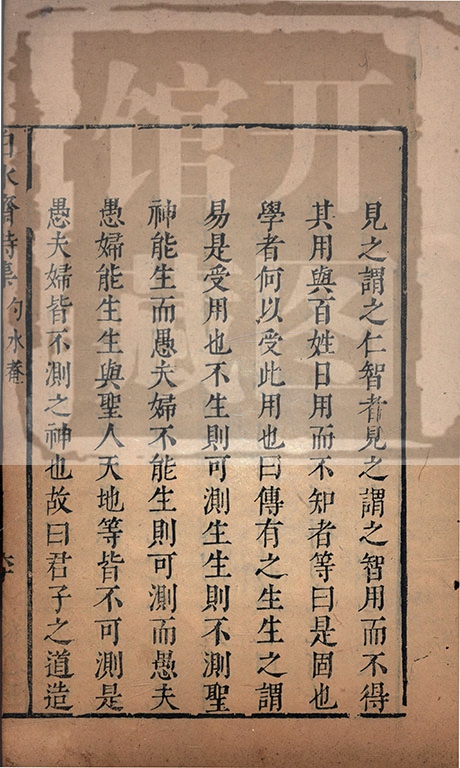 見之謂之仁智者見之謂之智用而不得
其用與百姓日用而不知者等曰是固也
學者何以受此用也曰傳有之生生之謂
易是受用也不生則可測生生則不測聖
神能生而愚夫婦不能生則可測而愚夫
愚婦能生生與聖人天地等皆不可測是
愚夫婦皆不測之神也故曰君子之道造
白水齋詩集 勺水菴
开图
馆藏